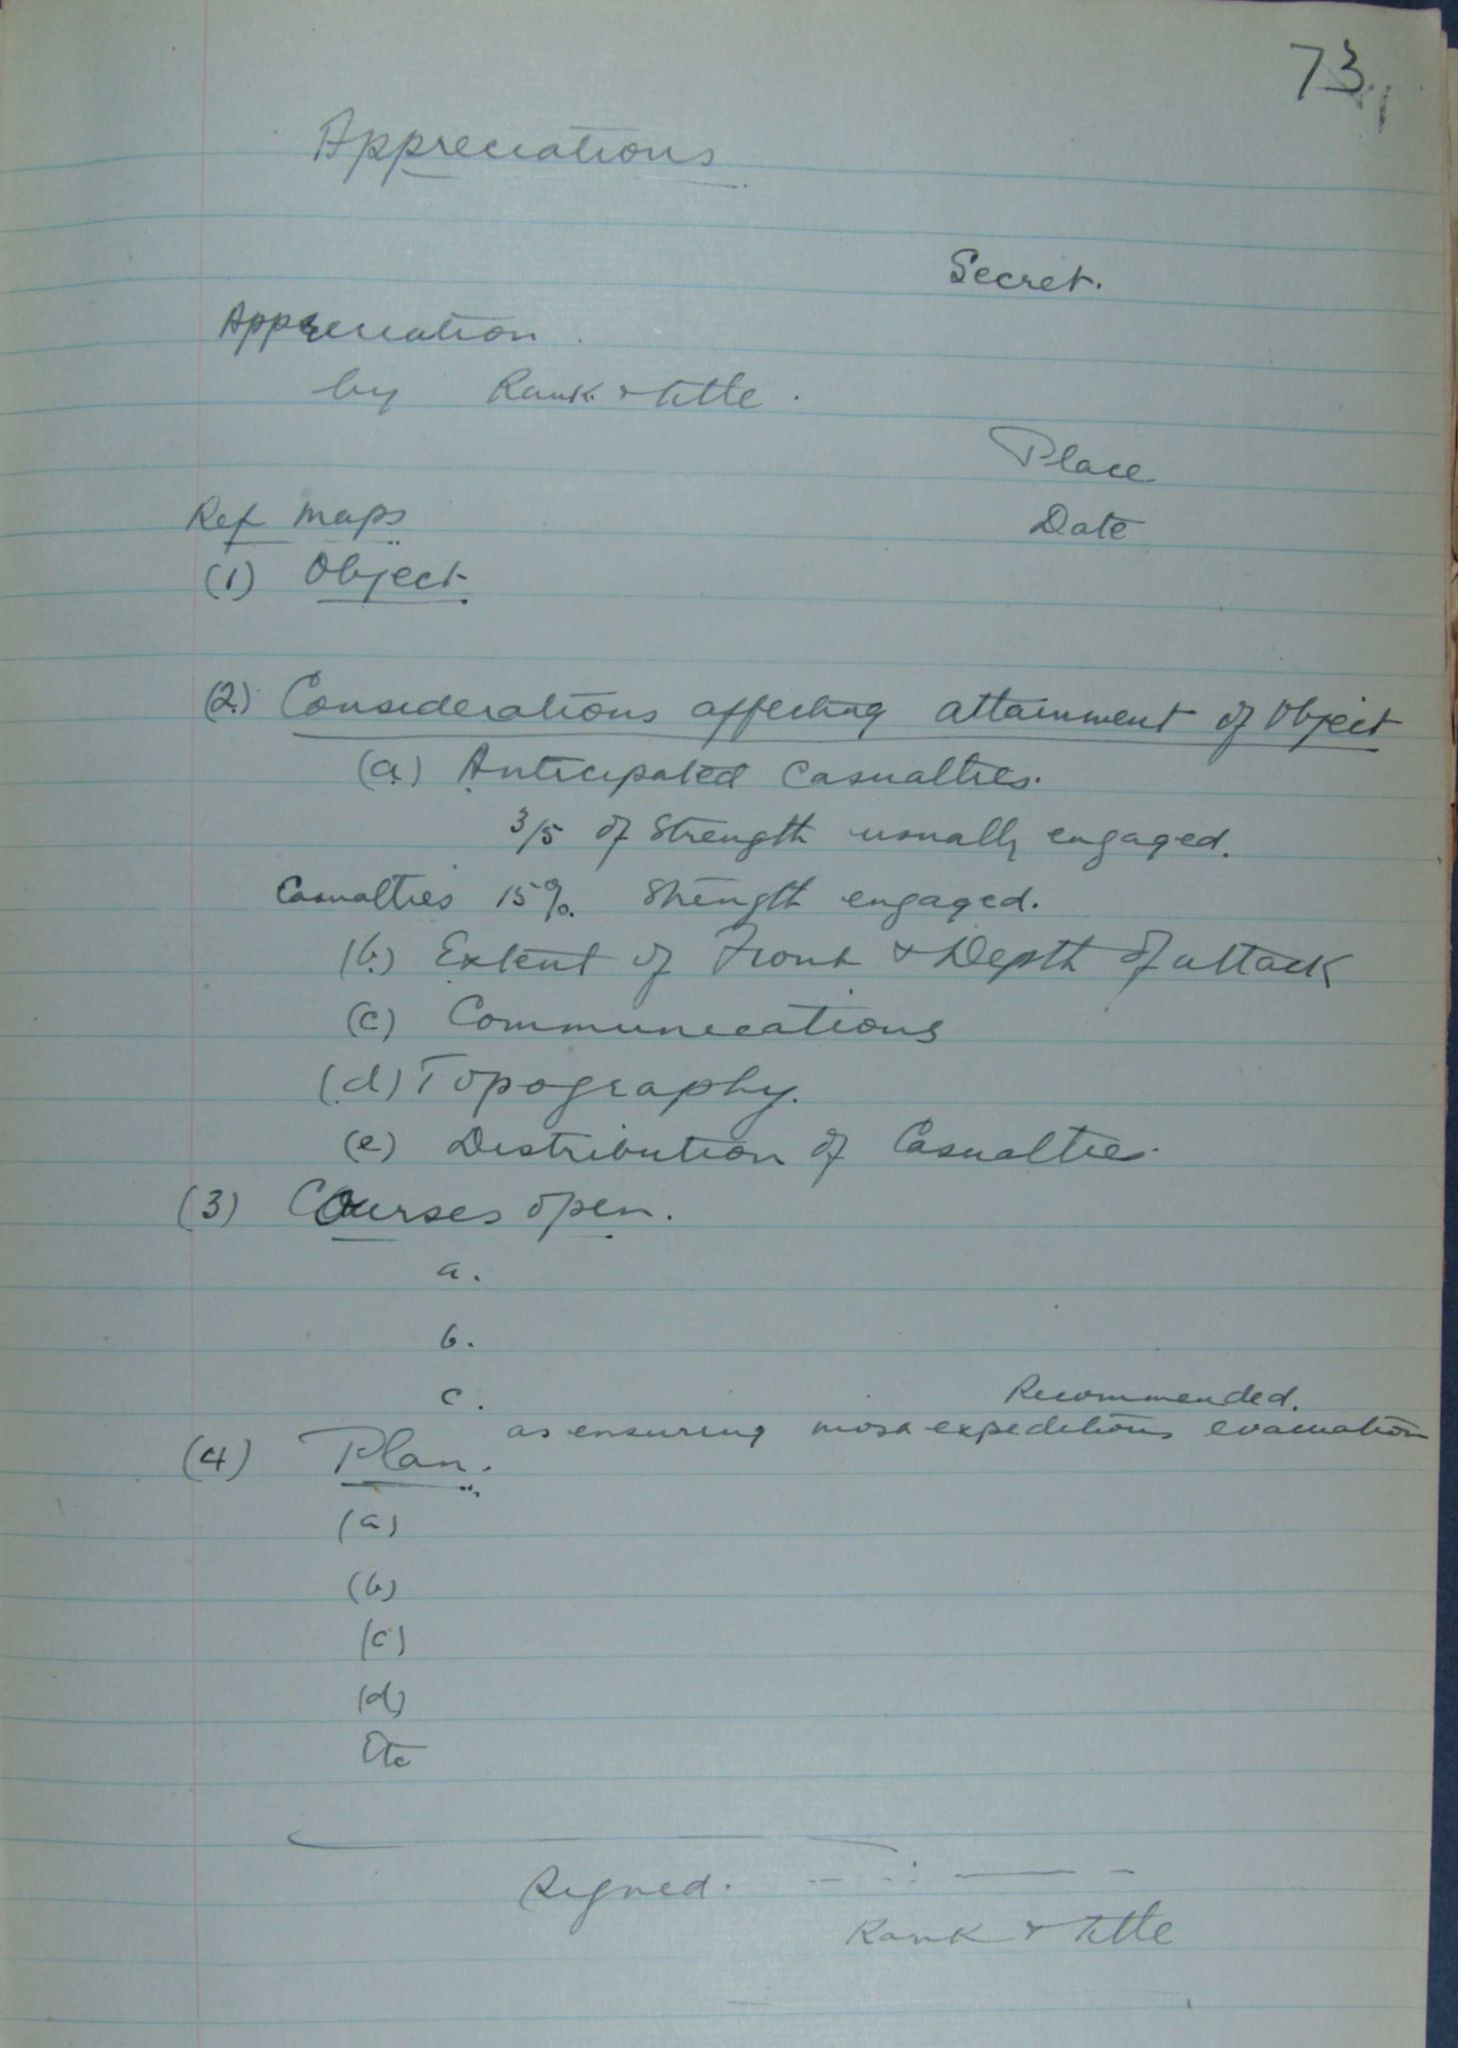 73
Appreciations
Secret.
Appreciation.
by Rank & title.
Place
Ref maps
Date
(1) Object
(2) Considerations affecting attainment of Object
(a) Anticipated Casualties.
3/5 of Strength usually engaged.
Casualties 15%. Strength engaged.
(b) Extent of Front & Depth of attack
(c) Communications
(d) Topography.
(e) Distribution of Casualties.
(3) Courses open.
a.
b.
c. Recommended.
as ensuring most expeditious evacuation
(4) Plan.
(a)
(b)
(c)
(d)
Etc
Signed.
Rank & title